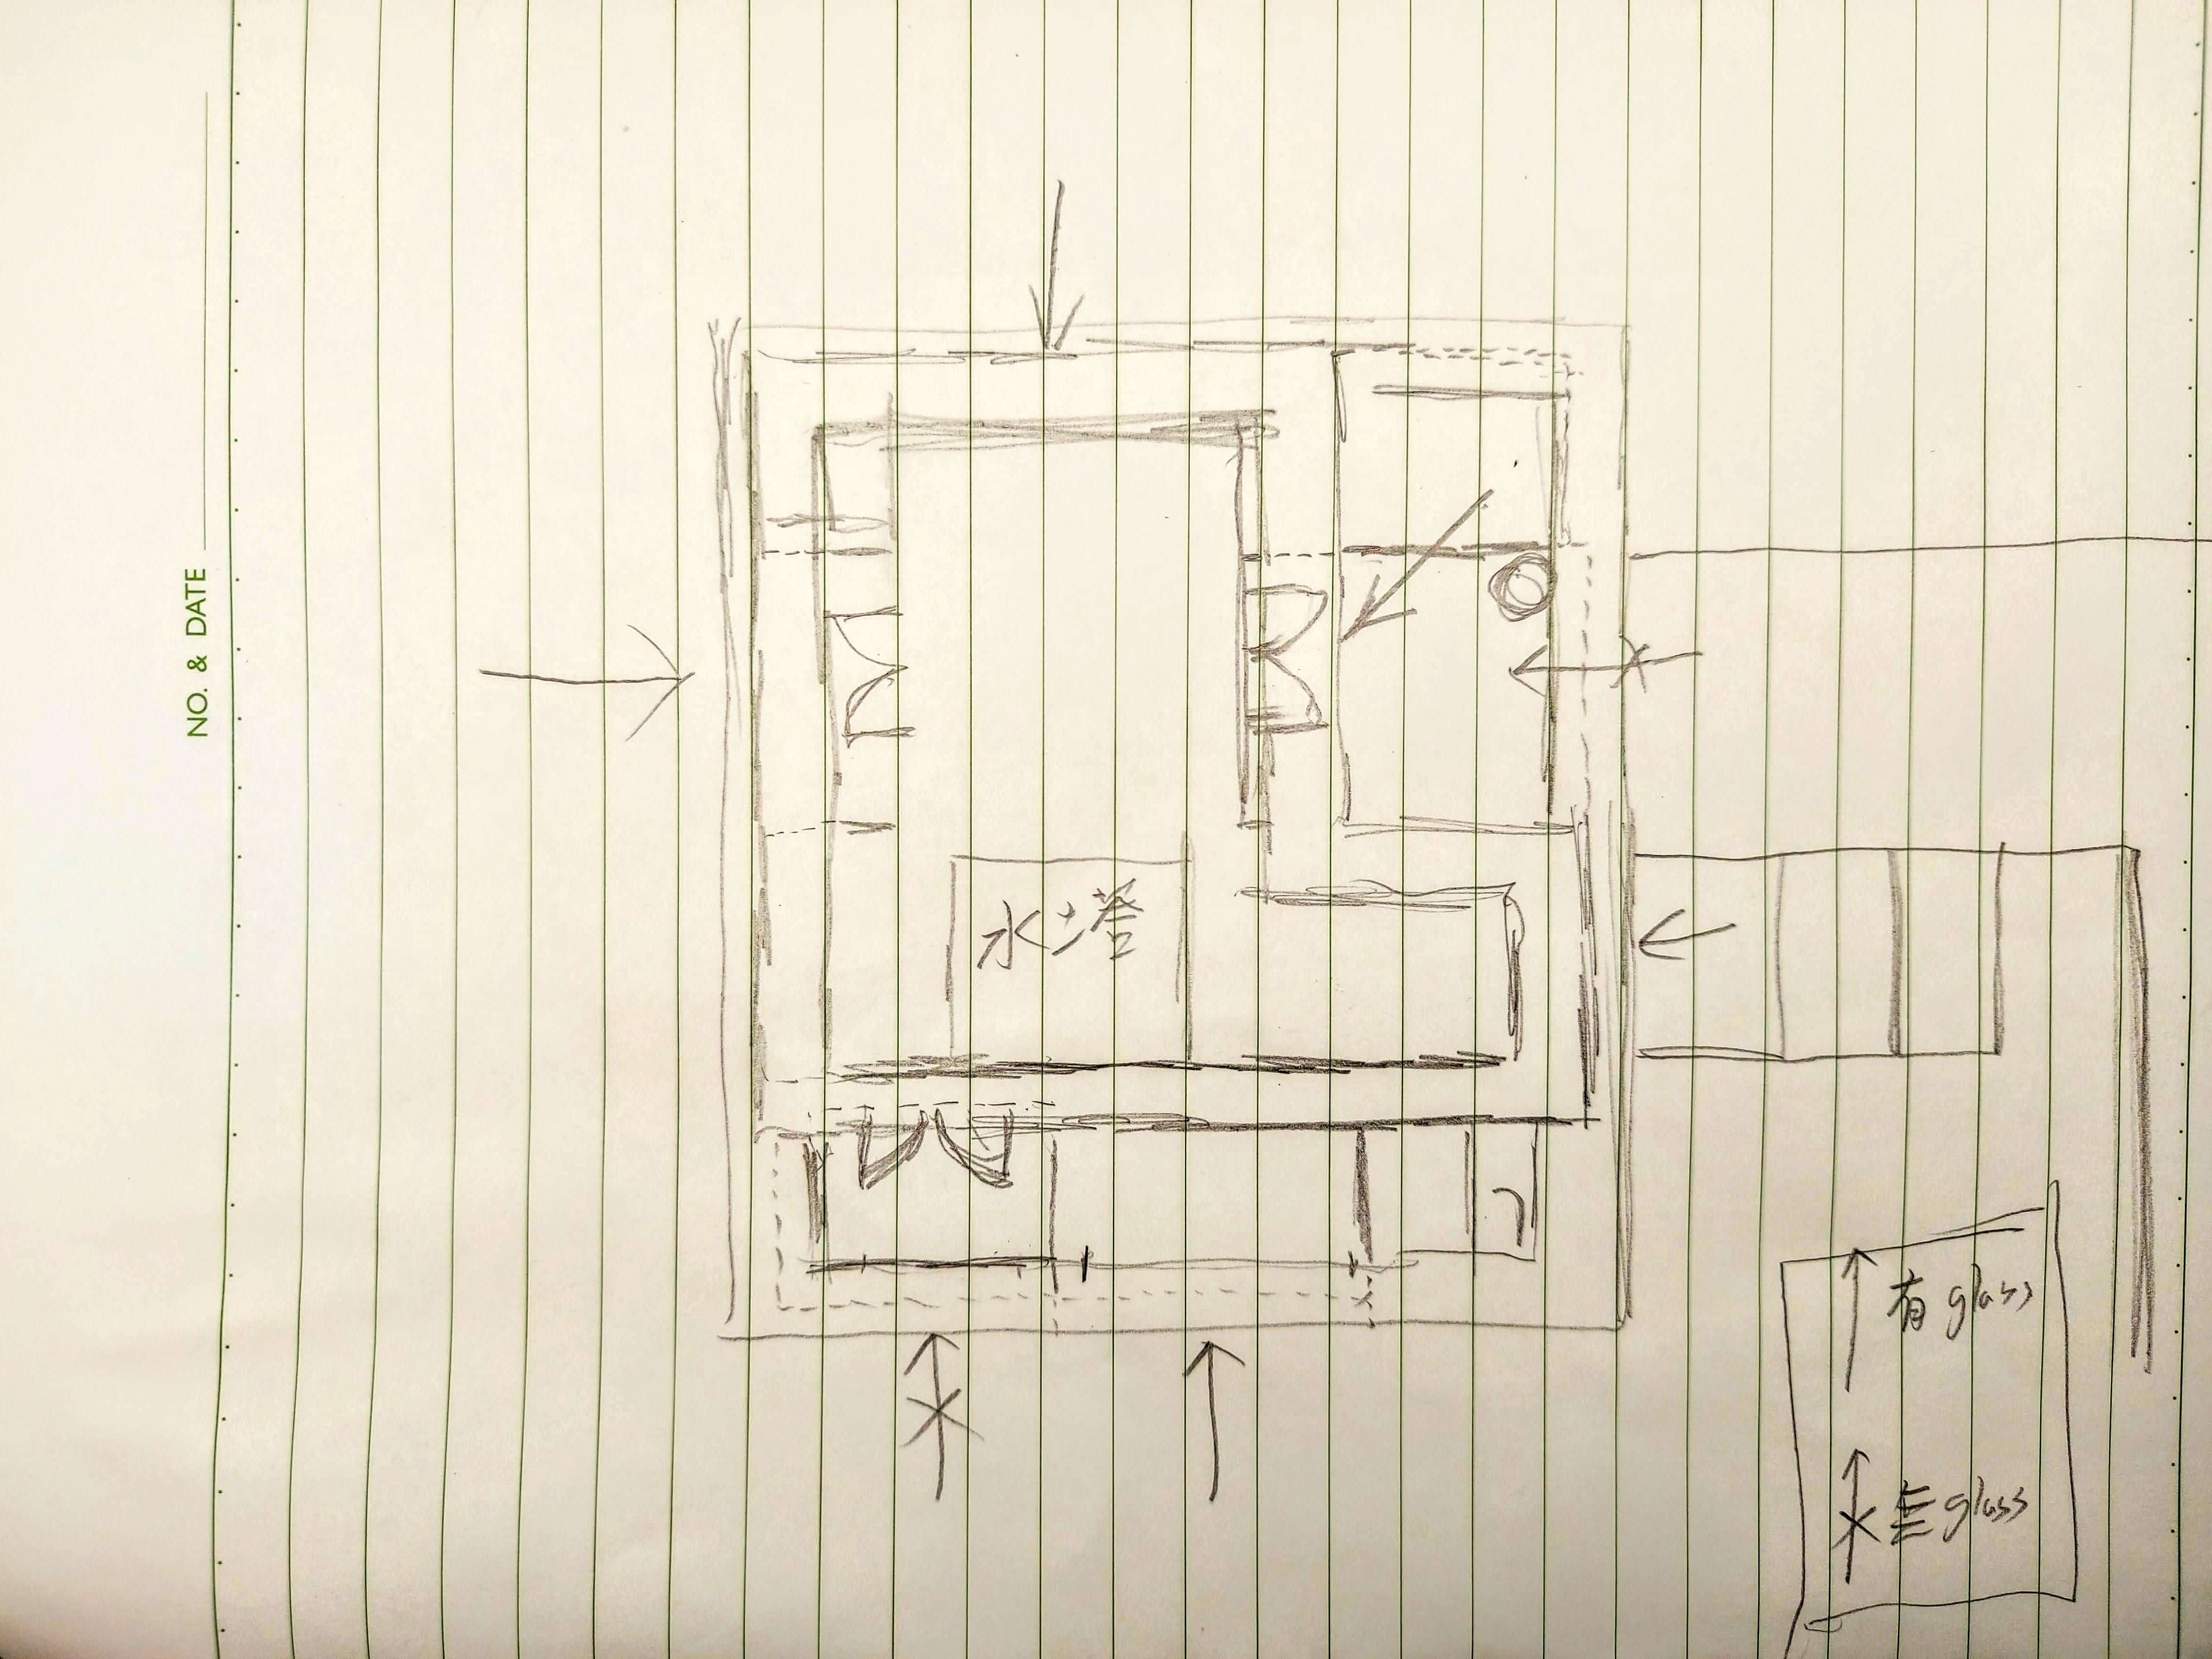 NO. & DATE
水塔
有 glass
無 glass